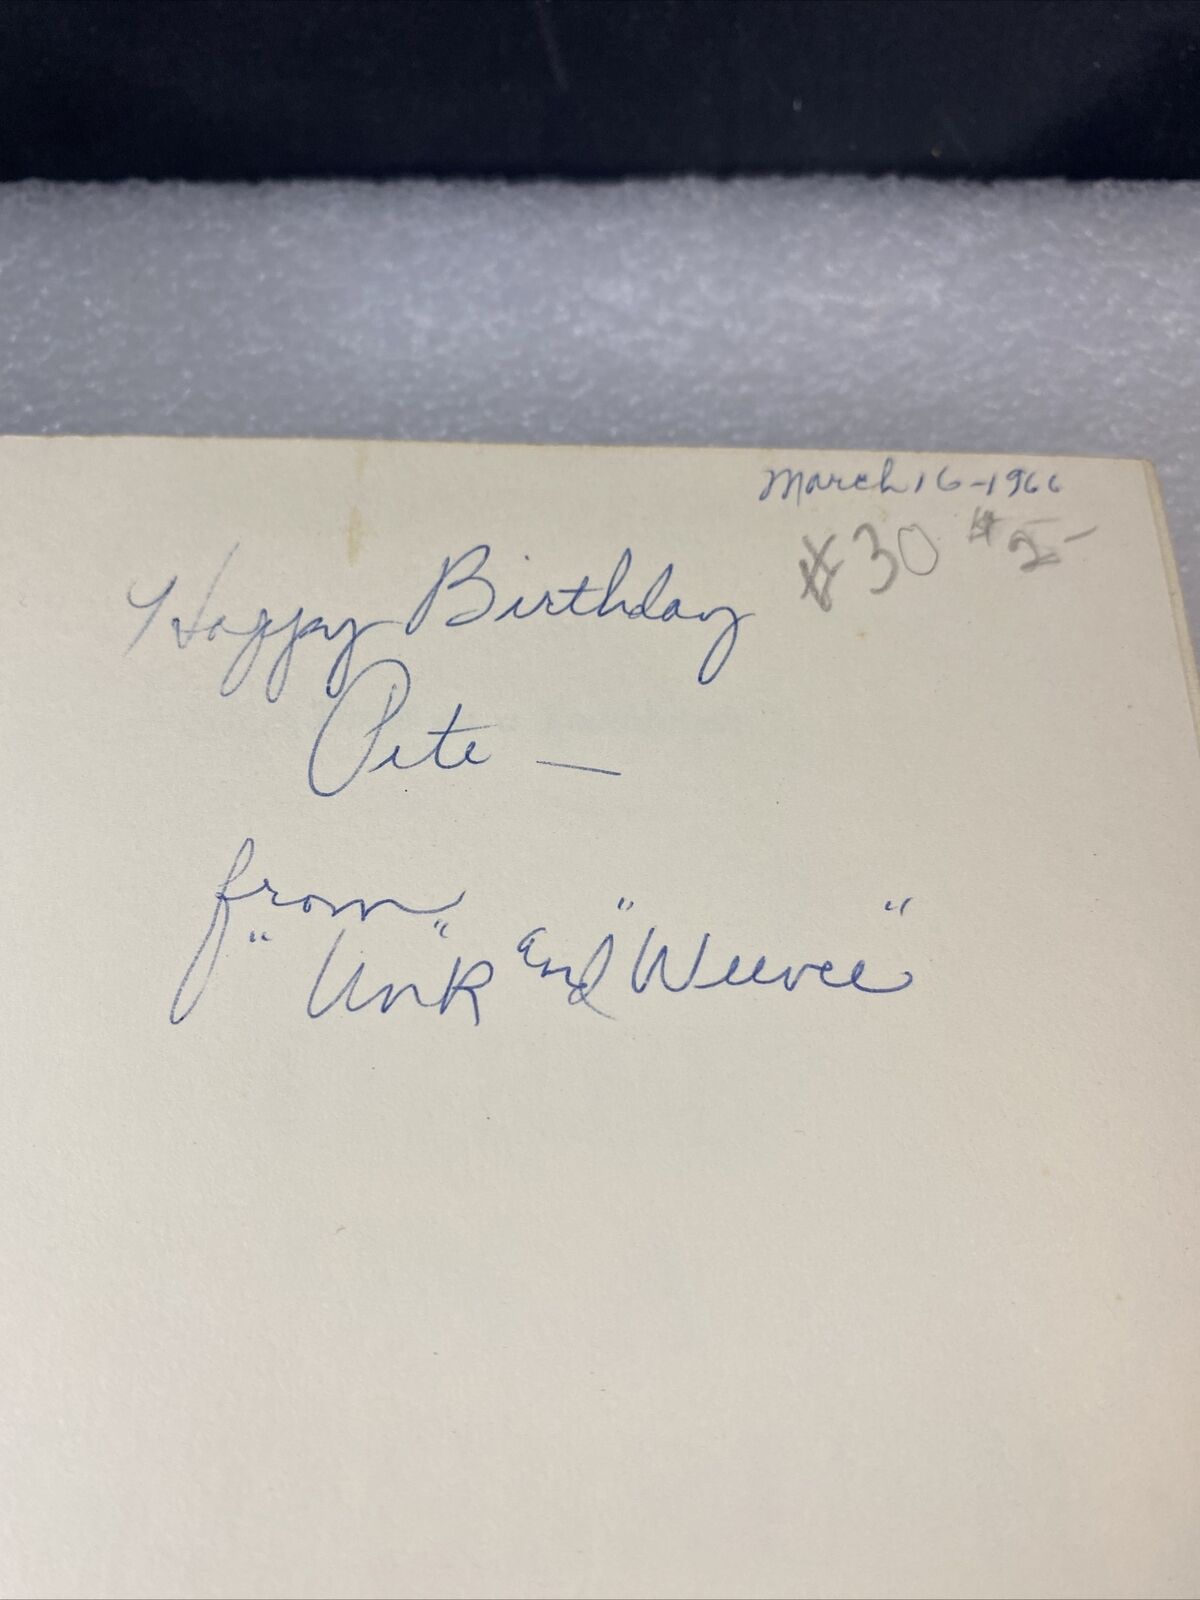 March 16-1966
#30 #2-
Happy Birthday
Pete —
from
"Unk" and "Weevee"